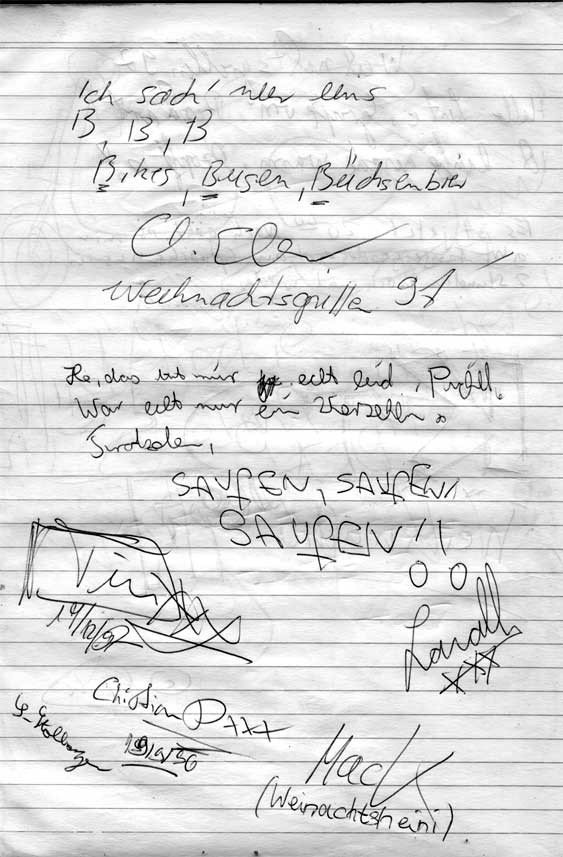 Ich sach' nur eins
B, B, B
Bikes, Busen, Büchsenbier
Weihnachtsgrillen 91
He, das tut mir echt leid,
War echt nur ein Versehen.
SAUFEN, SAUFEN!
SAUFEN!!
14/12/92
Christian P xxx
Mack
(Weinachtsheini)